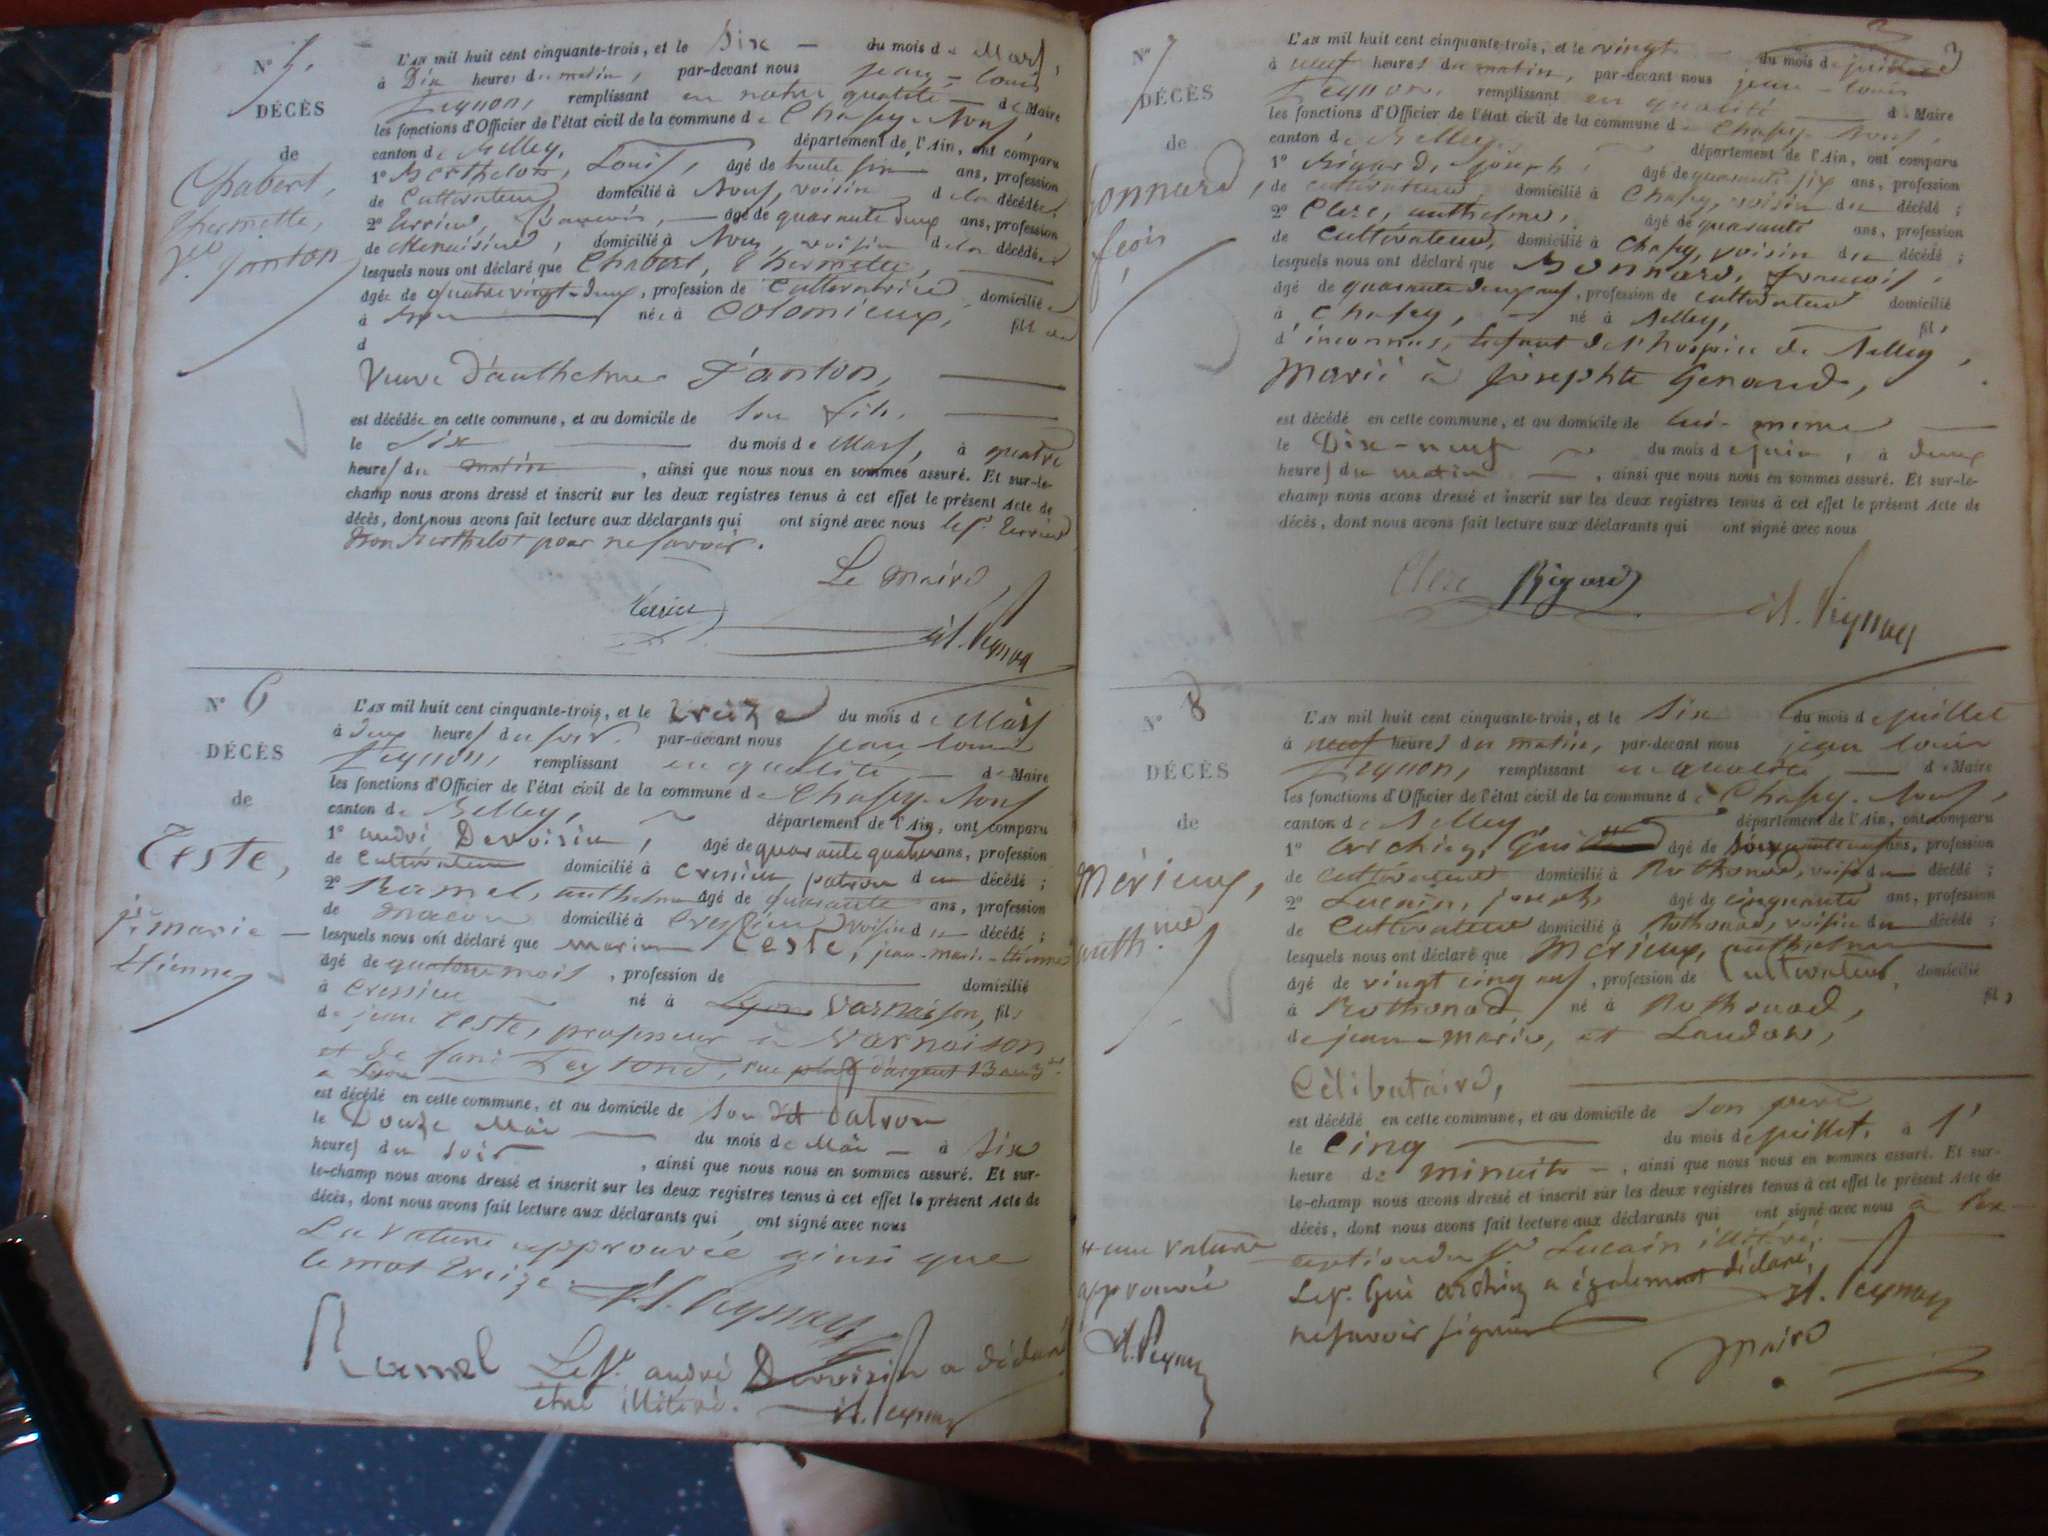 N° 5.
DÉCÈS
de
Chabert,
thermette,
Vve Janton
L'AN mil huit cent cinquante-trois, et le Six du mois de Mars,
à Dix heures du matin, par-devant nous jean-louis
Peynon, remplissant en notre qualité de Maire
les fonctions d'Officier de l'état civil de la commune de Chasey-
canton de Belley, département de l'Ain, ont comparu
1° Berthelot, Louis, âgé de trente ans, profession
de Cultivateur domicilié à voisin de la décédée;
2° Terrier, françois, âgé de quarante deux ans, profession
de Menuisier, domicilié à voisin de la décédée,
lesquels nous ont déclaré que Chabert, thermette,
âgée de quatre vingt deux, profession de Cultivatrice domiciliée
à née à Colomieux, fille de
d
Veuve d'anthelme Janton,
est décédée en cette commune, et au domicile de Son fils,
le Six du mois de Mars, à quatre
heures du matin, ainsi que nous nous en sommes assuré. Et sur-le-
champ nous avons dressé et inscrit sur les deux registres tenus à cet effet le présent Acte de
décès, dont nous avons fait lecture aux déclarants qui ont signé avec nous le sr. Terrier
non Berthelot pour ne savoir.
Le Maire,
Terrier
N° 6
DÉCÈS
de
Teste,
jn. marie
Etienne
L'AN mil huit cent cinquante-trois, et le treize du mois de Mai
à deux heures du soir. par-devant nous jean louis
Peynon, remplissant en qualité de Maire
les fonctions d'Officier de l'état civil de la commune de Chasey-
canton de Belley, département de l'Ain, ont comparu
1° andré Devoisin, âgé de quarante quatre ans, profession
de Cultivateur domicilié à Cressieu patron du décédé;
2° Ramel, anthelme âgé de quarante ans, profession
de Macon domicilié à Cressieu voisin du décédé;
lesquels nous ont déclaré que Teste, jean-marie-Etienne
âgé de quatorze mois, profession de domicilié
à Cressieu né à Lyon Varnaison, fils
de jean Teste, professeur à Varnaison
et de fani rue d'argent 13
a Lyon
est décédé en cette commune, et au domicile de Son dt Patron
le Douze Mai du mois de Mai à Six
heures du Soir, ainsi que nous nous en sommes assuré. Et sur-
le-champ nous avons dressé et inscrit sur les deux registres tenus à cet effet le présent Acte de
décès, dont nous avons fait lecture aux déclarants qui ont signé avec nous
La rature approuvée ainsi que
le mot treize.
Ramel Le sr. andré Devoisin a déclaré
être illitéré.
N° 7
DÉCÈS
de
bonnard,
fcois
3
L'AN mil huit cent cinquante-trois, et le vingt du mois de
à neuf heures du matin, par-devant nous jean-louis
Peynon, remplissant en qualité de Maire
les fonctions d'Officier de l'état civil de la commune de Chasey-
canton de Belley, département de l'Ain, ont comparu
1° Rigard, joseph, âgé de quarante six ans, profession
de cultivateur, domicilié à Chasey, voisin du décédé;
2° Clerc, anthelme, âgé de quarante ans, profession
de Cultivateur, domicilié à Chasey, voisin du décédé;
lesquels nous ont déclaré que Bonnard, françois,
âgé de quarante deux ans, profession de cultivateur domicilié
à Chasey, né à Belley, fils
d'inconnus, Enfant de l'hospice de Belley,
Marié à josephte Genard,
est décédé en cette commune, et au domicile de lui-meme
le Dix-neuf du mois de juin, à deux
heures du matin, ainsi que nous nous en sommes assuré. Et sur-le-
champ nous avons dressé et inscrit sur les deux registres tenus à cet effet le présent Acte de
décès, dont nous avons fait lecture aux déclarants qui ont signé avec nous
Clerc Rigard
N° 8
DÉCÈS
de
Mérieux,
anth.me
L'AN mil huit cent cinquante-trois, et le Six du mois de juillet
à neuf heures du matin, par-devant nous jean louis
Peynon, remplissant en qualité de Maire
les fonctions d'Officier de l'état civil de la commune de Chasey-
canton de Belley département de l'Ain, ont comparu
1° archiny, âgé de ans, profession
de cultivateur domicilié à Rothonod, voisin du décédé;
2° Lucain, joseph, âgé de cinquante ans, profession
de Cultivateur domicilié à Rothonod, voisin du décédé;
lesquels nous ont déclaré que Mérieux, anthelme
âgé de vingt cinq ans, profession de Cultivateur, domicilié
à Rothonod, né à Rothonod, fils
de jean-marie, et Laudon,
Célibataire,
est décédé en cette commune, et au domicile de Son père
le Cinq du mois de juillet, à 1'
heure de minuit, ainsi que nous nous en sommes assuré. Et sur-
le-champ nous avons dressé et inscrit sur les deux registres tenus à cet effet le présent Acte de
décès, dont nous avons fait lecture aux déclarants qui ont signé avec nous à l'ex-
ception du sr Lucain illitéré.
Le sr. Gui archiny a également déclaré,
ne savoir signer
Maire
une rature
approuvée